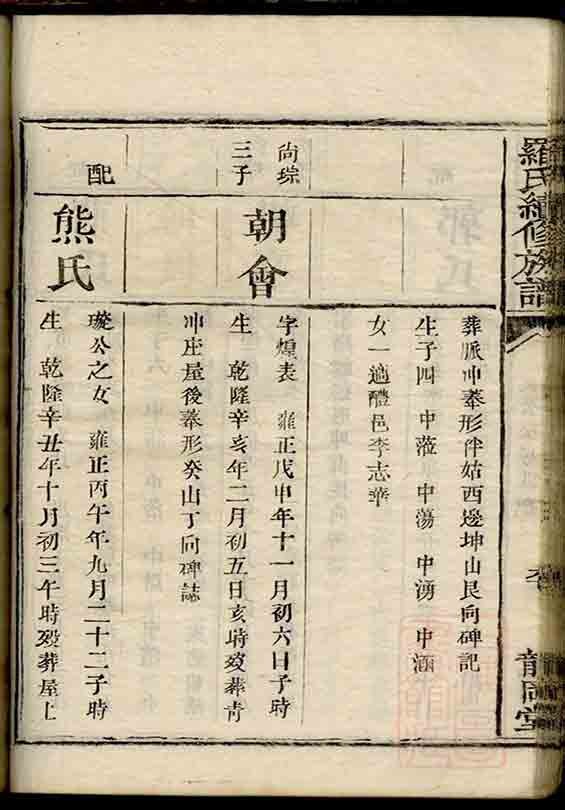 羅氏續修族譜
龍岡堂
葬脈冲慕形伴姑西邊坤山艮向碑記
生子四 中蒞 中蕩 中湧 中涵
女一適醴邑李志華
尚琮
三子
朝會
字煌表 雍正戊申年十一月初六日子時
生 乾隆辛亥年二月初五日亥時歿葬青
冲庄屋後慕形癸山丁向碑誌
配
熊氏
璇公之女 雍正丙午年九月二十二子時
生 乾隆辛丑年十月初三午時歿葬屋上